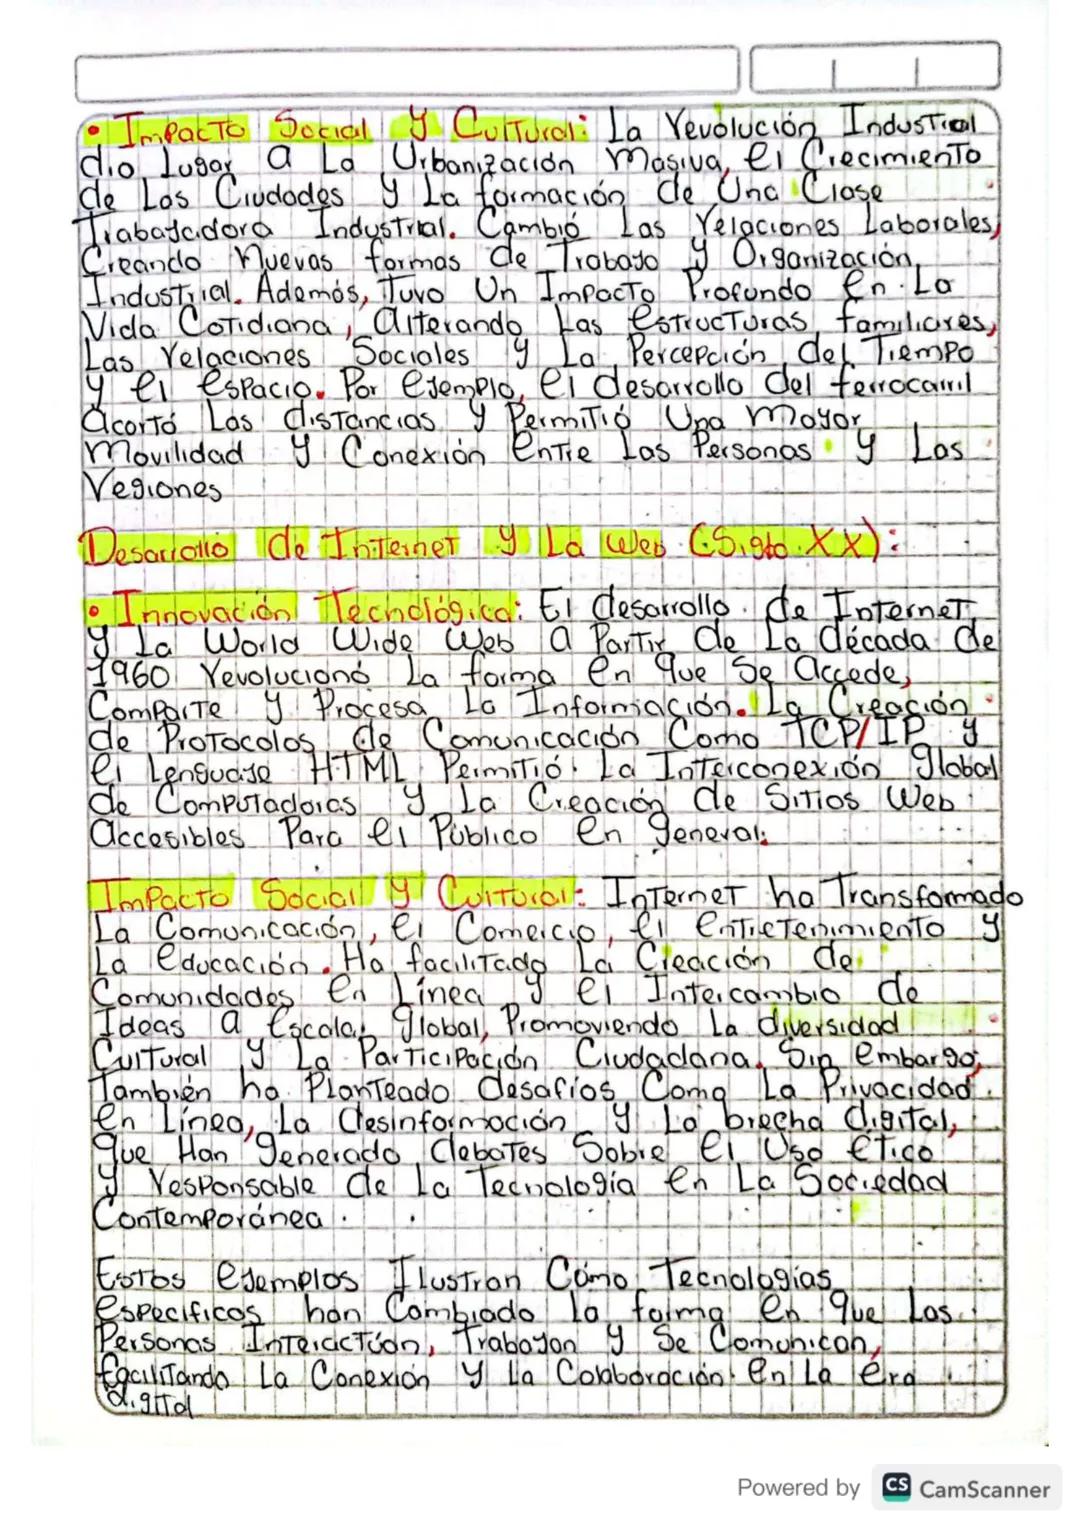 • Impacto Social y Cultural: La revolución Industrial
dio Lugar a La Urbanización masiva, el Crecimiento
de Las Ciudades y La formación de Una Clase
Trabajadora Industrial. Cambió Las relaciones Laborales,
Creando nuevas formas de Trabajo y Organización
Industrial. Además, Tuvo Un Impacto Profundo en La
Vida Cotidiana, alterando Las estructuras familiares,
Las relaciones Sociales y La Percepción del Tiempo
y el espacio. Por ejemplo, el desarrollo del ferrocarril
acortó Las distancias y Permitió Una mayor
movilidad y Conexión Entre Las Personas y Las
regiones
Desarrollo de Internet y La Web (Siglo XX):
• Innovación Tecnológica: El desarrollo de Internet
y La World Wide Web a Partir de La década de
1960 revolucionó La forma en que Se accede,
Comparte y Procesa La Información. La Creación
de Protocolos de Comunicación Como TCP/IP y
el Lenguaje HTML Permitió La Interconexión global
de Computadoras y La Creación de Sitios Web
accesibles Para el Público en general.
Impacto Social y Cultural: Internet ha Transformado
La Comunicación, el Comercio, el entretenimiento y
La educación. Ha facilitado La Creación de
Comunidades en Línea y el Intercambio de
Ideas a Escala global, Promoviendo La diversidad
Cultural y La Participación Ciudadana. Sin embargo,
También ha Planteado desafíos Como La Privacidad
en Línea, La desinformación y La brecha digital,
que Han generado debates Sobre el Uso ético
y responsable de La Tecnología en La Sociedad
Contemporánea.
Estos ejemplos Ilustran Cómo Tecnologías
especificos han Cambiado la forma en que Las
Personas Interactúan, Trabajan y Se Comunican,
facilitando La Conexión y La Colaboración en La éra
digital
Powered by CS CamScanner